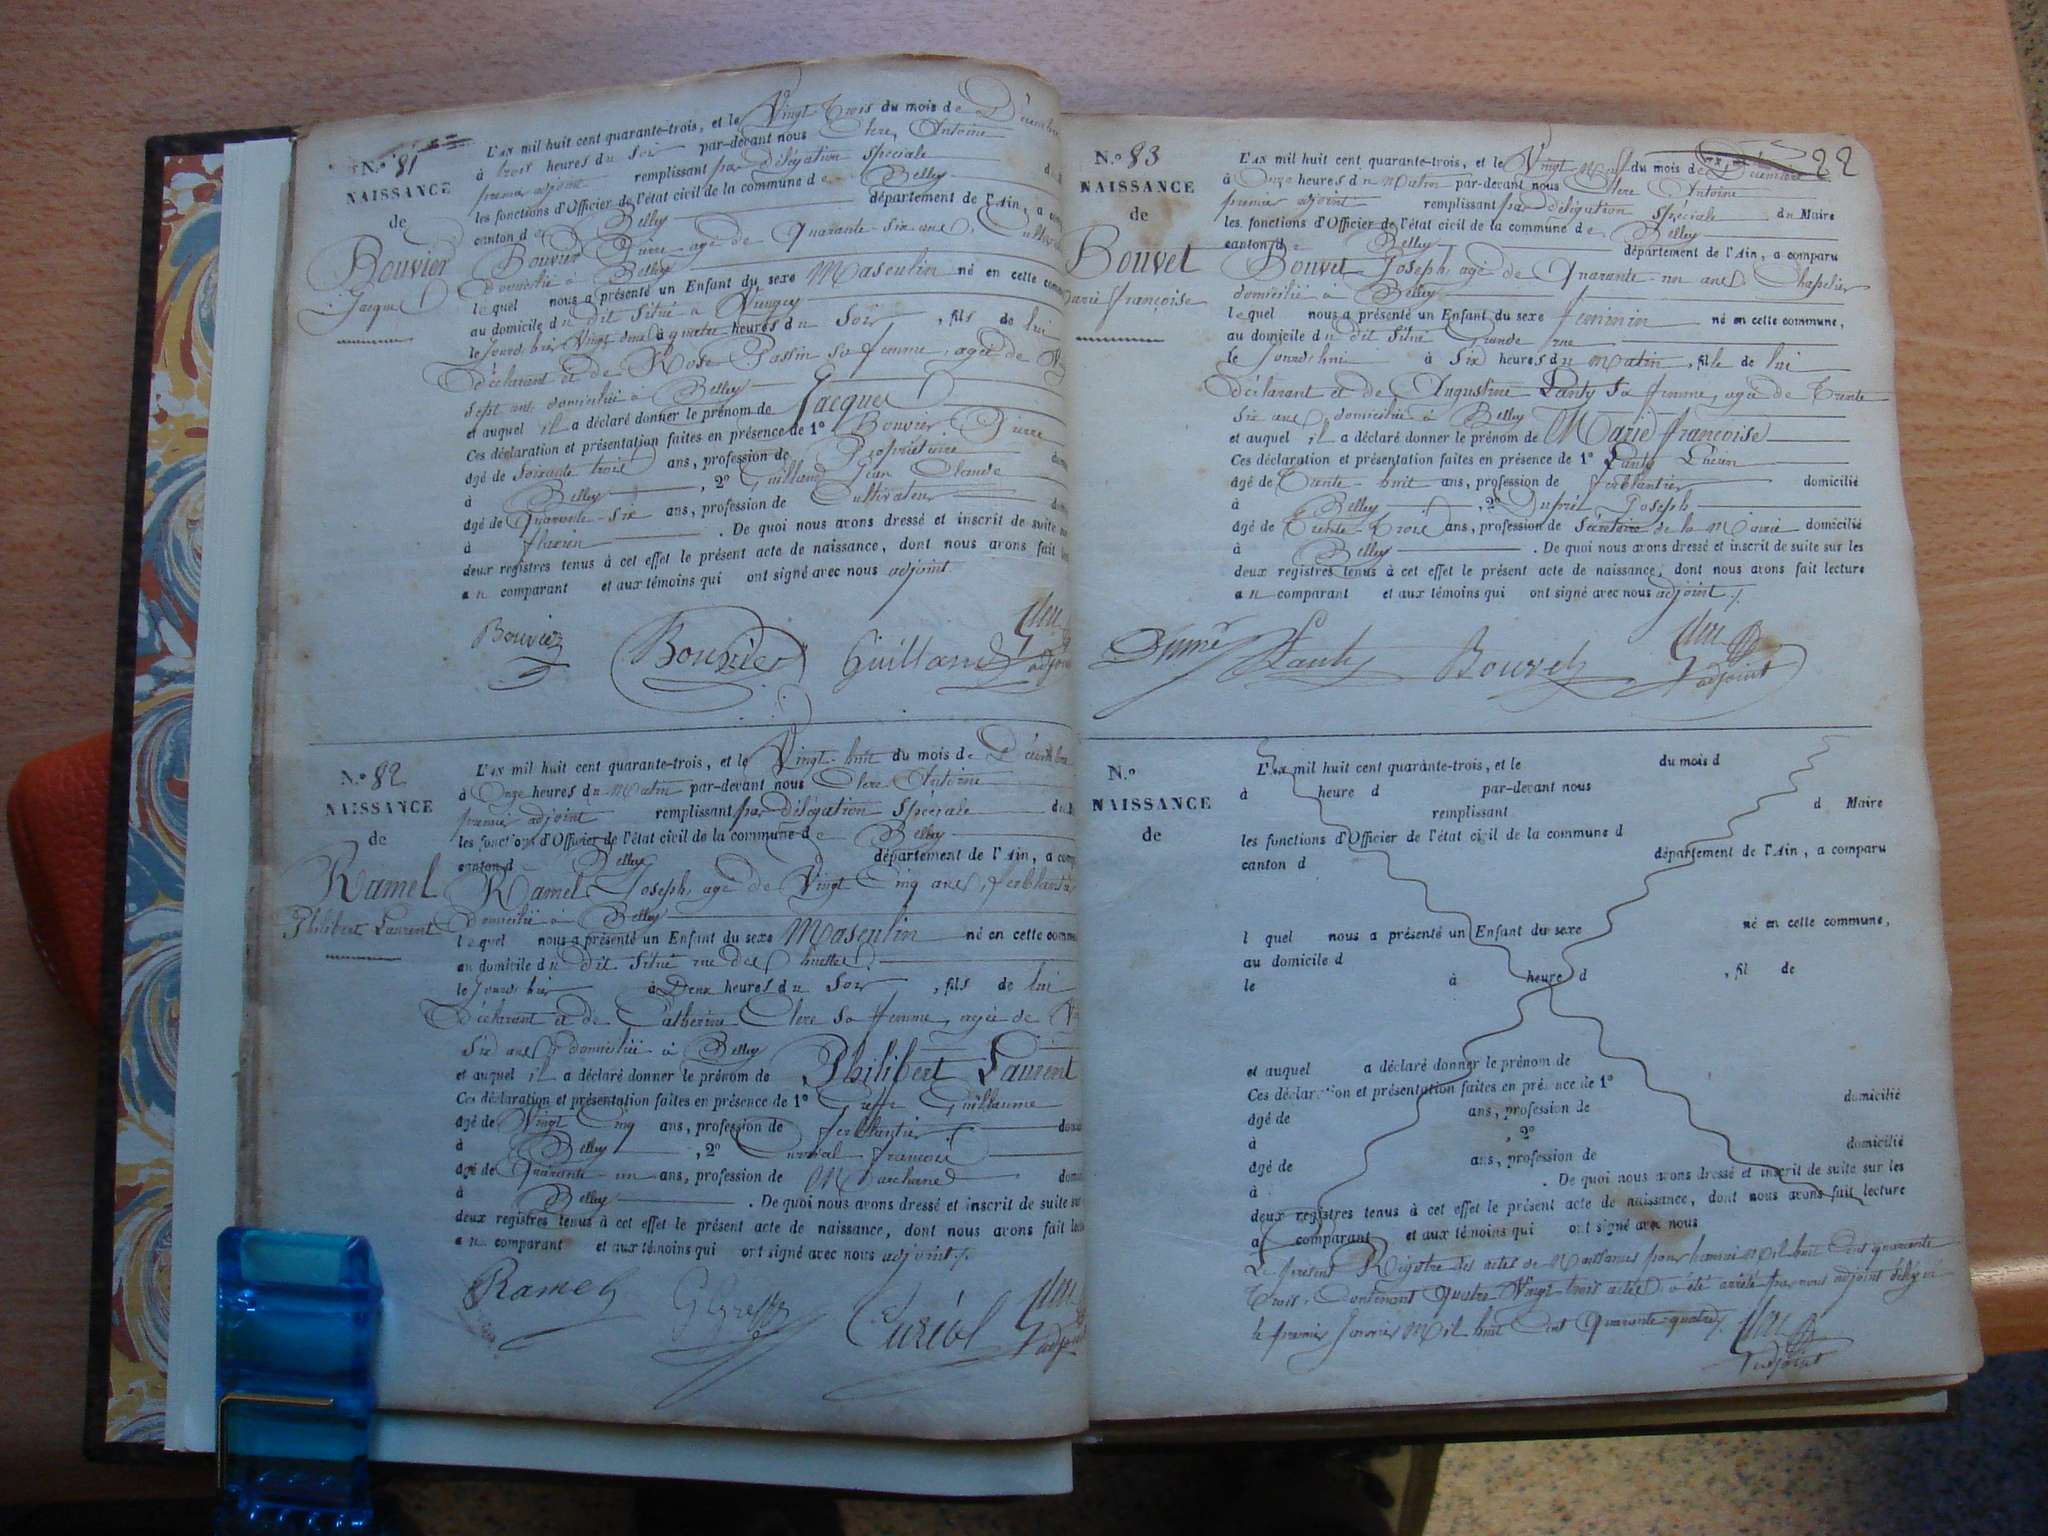 N.º 81
NAISSANCE
de
Bouvier
Jacques
L'an mil huit cent quarante-trois, et le Vingt-Trois du mois de Décembre
à trois heures du soir par-devant nous Clerc Antoine
premier adjoint remplissant par délégation spéciale
les fonctions d'Officier de l'état civil de la commune de Belley
canton de Belley département de l'Ain, a
Bouvier Pierre agé de Quarante-six ans,
domicilié à Belley
lequel nous a présenté un Enfant du sexe Masculin né en cette
au domicile du dit situé à
le jourd'hier Vingt deux à quatre heures du Soir, fils de lui
Déclarant et de Rose Passin sa femme, agée de
sept ans domiciliée à Belley
et auquel il a déclaré donner le prénom de Jacques
Ces déclaration et présentation faites en présence de 1º Bouvier Pierre
âgé de Soixante trois ans, profession de Propriétaire
à Belley, 2º Guilland Jean Claude
âgé de Quarante-six ans, profession de Cultivateur
à. De quoi nous avons dressé et inscrit de suite
deux registres tenus à cet effet le présent acte de naissance, dont nous avons fait
au comparant et aux témoins qui ont signé avec nous adjoint
Bouvier Bouvier Guilland
N.º 82
NAISSANCE
de
Ramel
Philibert Laurent
L'an mil huit cent quarante-trois, et le Vingt-huit du mois de Décembre
à Onze heures du Matin par-devant nous Clerc Antoine
premier adjoint remplissant par délégation Spéciale
les fonctions d'Officier de l'état civil de la commune de Belley
canton d Belley département de l'Ain, a
Ramel Joseph, agé de Vingt Cinq ans, ferblantier
Domicilié à Belley
lequel nous a présenté un Enfant du sexe Masculin né en cette
au domicile du dit Situé rue des
le jourd'hier à Deux heures du Soir, fils de lui
Déclarant et de Catherine Clerc Sa femme, agée de
Six ans domiciliée à Belley
et auquel il a déclaré donner le prénom de Philibert Laurent
Ces déclaration et présentation faites en présence de 1º Guillaume
âgé de Vingt Cinq ans, profession de ferblantier
à Belley, 2º François
âgé de Quarante-un ans, profession de Marchand
à Belley. De quoi nous avons dressé et inscrit de suite sur
deux registres tenus à cet effet le présent acte de naissance, dont nous avons fait
au comparant et aux témoins qui ont signé avec nous adjoint
Ramel
22
N.º 83
NAISSANCE
de
Bouvet
Marie françoise
L'an mil huit cent quarante-trois, et le Vingt Neuf du mois de Décembre
à Onze heures du Matin par-devant nous Clerc Antoine
premier adjoint remplissant par délégation Spéciale du Maire
les fonctions d'Officier de l'état civil de la commune de Belley
canton de Belley département de l'Ain, a comparu
Bouvet Joseph, agé de Quarante-un ans, Chapelier
domicilié à Belley
lequel nous a présenté un Enfant du sexe féminin né en cette commune,
au domicile du dit Situé Grande rue
le jourd'hui à Six heures du Matin, fille de lui
déclarant et de Augustine Lanty Sa femme, agée de Trente
Six ans, domiciliée à Belley
et auquel il a déclaré donner le prénom de Marie françoise
Ces déclaration et présentation faites en présence de 1º Lanty Lucien
âgé de Trente-huit ans, profession de ferblantier domicilié
à Belley, 2º Dupré Joseph
âgé de Trente-Trois ans, profession de Secrétaire de la Mairie domicilié
à Belley. De quoi nous avons dressé et inscrit de suite sur les
deux registres tenus à cet effet le présent acte de naissance, dont nous avons fait lecture
au comparant et aux témoins qui ont signé avec nous adjoint
Dupré Lanty Bouvet
adjoint
N.º
NAISSANCE
de
L'an mil huit cent quarante-trois, et le du mois d
à heure d par-devant nous
remplissant d Maire
les fonctions d'Officier de l'état civil de la commune d
canton d département de l'Ain, a comparu
l quel nous a présenté un Enfant du sexe né en cette commune,
au domicile d
le à heure d, fil de
et auquel a déclaré donner le prénom de
Ces déclaration et présentation faites en présence de 1º
âgé de ans, profession de domicilié
à, 2º
âgé de ans, profession de domicilié
à. De quoi nous avons dressé et inscrit de suite sur les
deux registres tenus à cet effet le présent acte de naissance, dont nous avons fait lecture
a comparant et aux témoins qui ont signé avec nous
Le présent Registre des actes de Naissances pour l'année Mil huit Cent quarante
Trois, Contenant Quatre Vingt trois actes, a été arrêté par nous adjoint délégué
le premier Janvier Mil huit Cent Quarante-quatre
adjoint